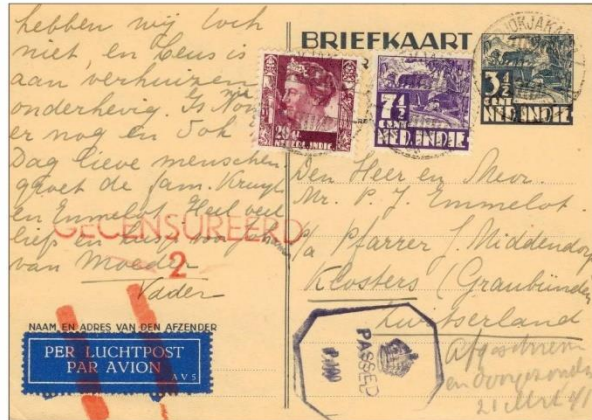 hebben wij toch
niet, en Ceus is
aan verhuizen
onderhevig. Is
er nog en Sok
Dag lieve menschen
groet de fam. Kruyt
en Emmelot. Heil veel
liefs en
van Moeder
Vader
GECENSUREERD
2
NAAM EN ADRES VAN DEN AFZENDER
PER LUCHTPOST
PAR AVION
AVS
BRIEFKAART
20 CT
NEDERL.INDIE
7½
CENT
NED.INDIE
3½
CENT
NED.INDIE
Den Heer en Mevr.
Mr. P. J. Emmelot.
p/a Pfarrer J. Middendorp
Klosters (Graubünden
Zwitserland
PASSED
Afgeschreven
en doorgezonden
21 Mrt 41